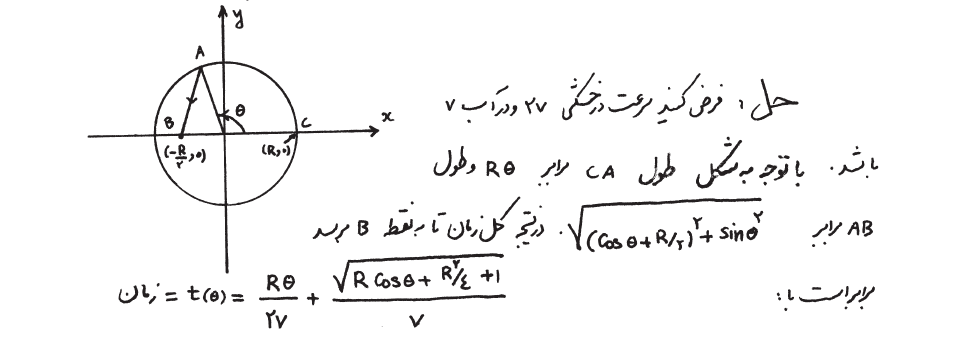 y
A
θ
B
C
x
(-R/۲, ۰)
(R, ۰)
حل: فرض کنید سرعت در خشکی ۲v و در آب v
باشد. با توجه به شکل طول CA برابر Rθ و طول
AB برابر √((Cosθ + R/۲)^۲ + sinθ^۲). در نتیجه کل زمان تا به نقطه B برسد
برابر است با:
زمان = t(θ) = Rθ/۲v + √(R Cosθ + R^۲/٤ + ۱)/v